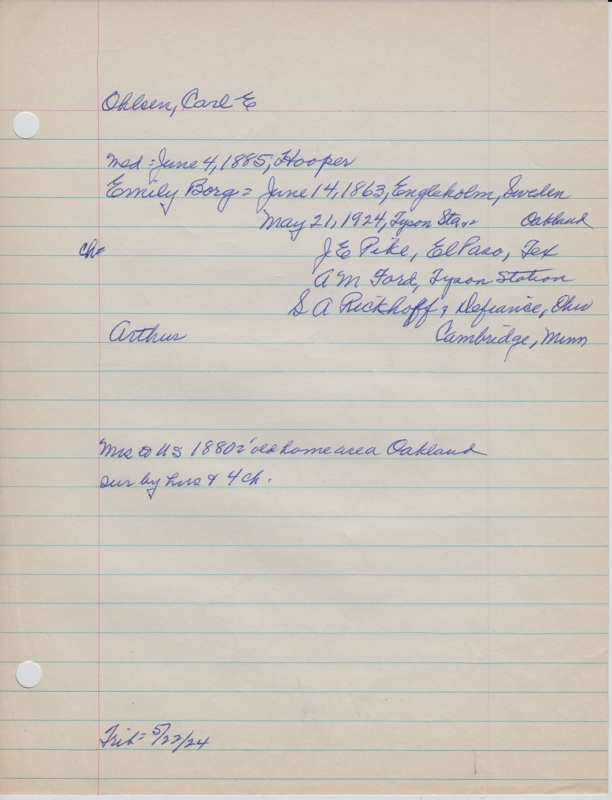 Ohlsen, Carl E
Med = June 4, 1885, Hooper
Emily Borg = June 14, 1863, Engleholm, Sweden
May 21, 1924, Tyson Sta, Oakland
ch=
J E Pike, El Paso, Tex
A M Ford, Tyson Station
S A Rickhoff, Defiance, Ohio
Arthur Cambridge, Minn
Mrs to US 1880 home area Oakland
sur by hus & 4 ch.
Trib = 5/22/24